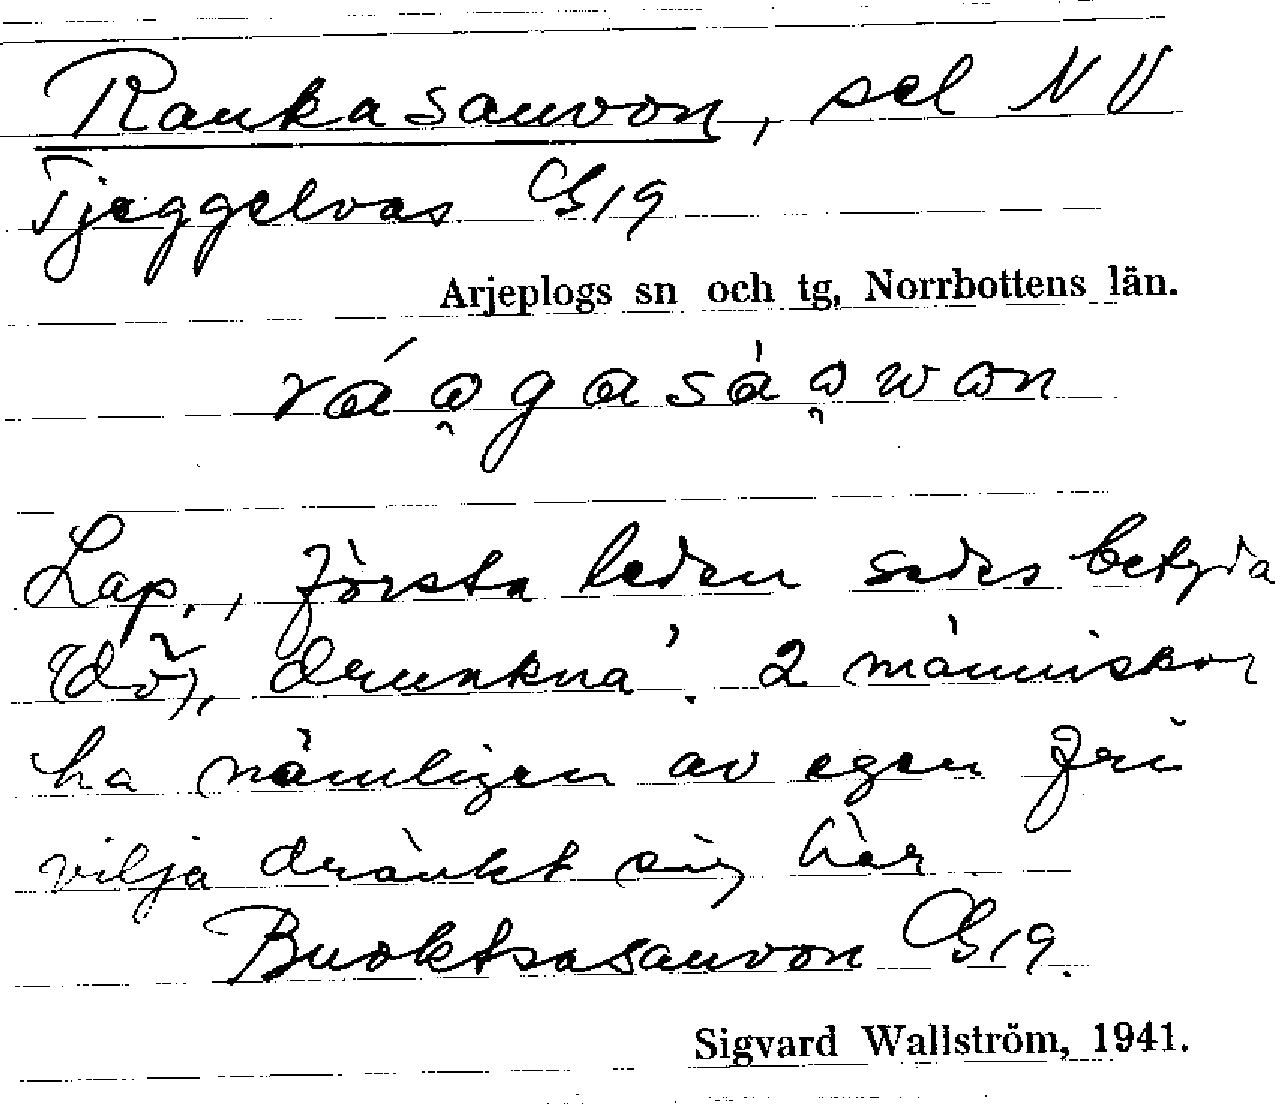 Raukasauvon, sel NV
Tjeggelvas G19
Arjeplogs sn och tg, Norrbottens län.
Lap., första leden sades betyda
'(dö), drunkna'. 2 människor
ha nämligen av egen fri
vilja dränkt sig här
Buoktsasauvon G19.
Sigvard Wallström, 1941.